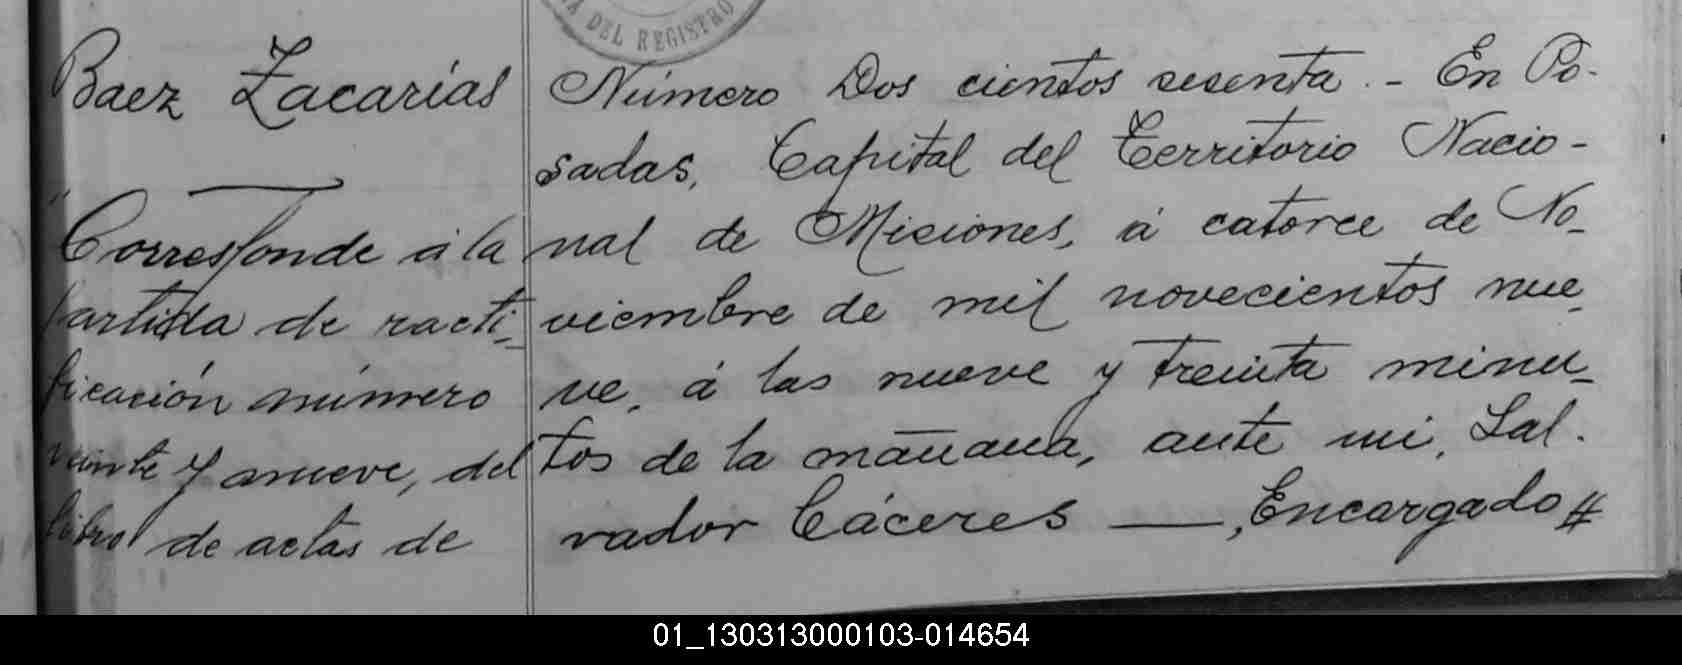 A DEL REGISTRO
Baez Zacarías
Corresponde á la
partida de racti-
ficación número
veinte y nueve, del
libro de actas de
Número Dos cientos sesenta. - En Po-
sadas, Capital del Territorio Nacio-
nal de Misiones, á catorce de No-
viembre de mil novecientos nue-
ve, á las nueve y treinta minu-
tos de la mañana, ante mi, Sal-
vador Cáceres —, Encargado #
01_130313000103-014654